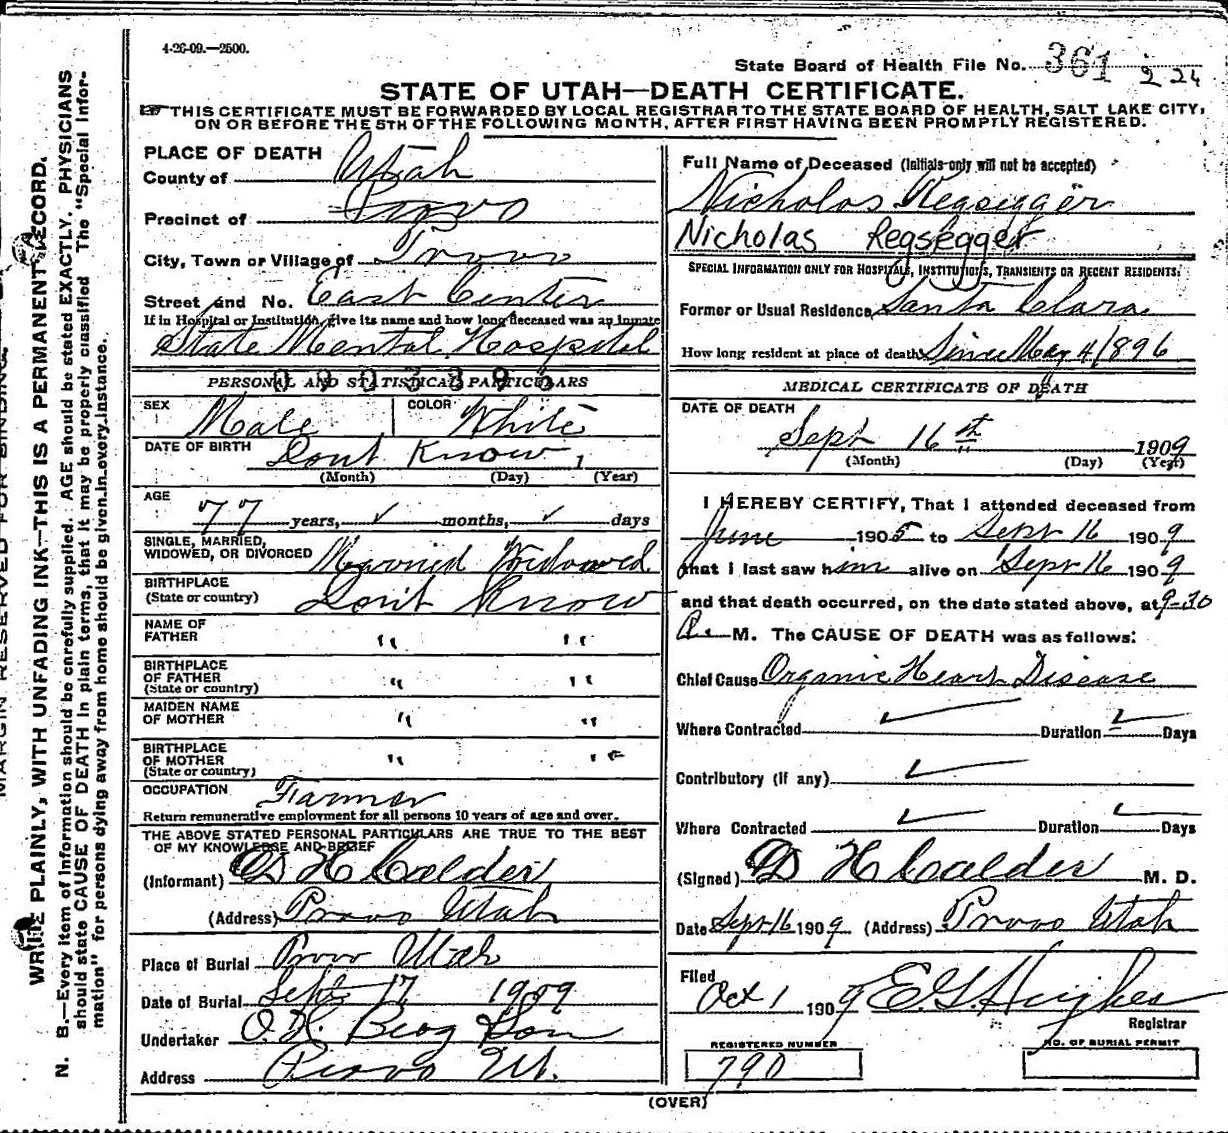 4-26-09.—2500.
State Board of Health File No. 361 224
STATE OF UTAH—DEATH CERTIFICATE.
THIS CERTIFICATE MUST BE FORWARDED BY LOCAL REGISTRAR TO THE STATE BOARD OF HEALTH, SALT LAKE CITY,
ON OR BEFORE THE 5TH OF THE FOLLOWING MONTH, AFTER FIRST HAVING BEEN PROMPTLY REGISTERED.
PLACE OF DEATH
County of Utah
Precinct of Provo
City, Town or Village of Provo
Street and No. East Center
If in Hospital or Institution, give its name and how long deceased was an inmate
State Mental Hospital
PERSONAL AND STATISTICAL PARTICULARS
SEX Male COLOR White
DATE OF BIRTH Dont Know
(Month) (Day) (Year)
AGE 77 years, ✓ months, ✓ days
SINGLE, MARRIED,
WIDOWED, OR DIVORCED Married Widowed
BIRTHPLACE
(State or country) Don't Know
NAME OF
FATHER " "
BIRTHPLACE
OF FATHER
(State or country) " "
MAIDEN NAME
OF MOTHER " "
BIRTHPLACE
OF MOTHER
(State or country) " "
OCCUPATION Farmer
Return remunerative employment for all persons 10 years of age and over.
THE ABOVE STATED PERSONAL PARTICULARS ARE TRUE TO THE BEST
OF MY KNOWLEDGE AND BELIEF
(Informant) D H Calder
(Address) Provo Utah
Place of Burial Provo Utah
Date of Burial Sept 17 1909
Undertaker O. H. Berg Son
Address Provo Ut.
Full Name of Deceased (Initials only will not be accepted)
Nicholas Regsigger
Nicholas Regsegger
SPECIAL INFORMATION ONLY FOR HOSPITALS, INSTITUTIONS, TRANSIENTS OR RECENT RESIDENTS.
Former or Usual Residence Santa Clara
How long resident at place of death Since May 4/1896
MEDICAL CERTIFICATE OF DEATH
DATE OF DEATH
Sept 16 st 1909
(Month) (Day) (Year)
I HEREBY CERTIFY, That I attended deceased from
June 1905 to Sept 16 1909
that I last saw him alive on Sept 16 1909
and that death occurred, on the date stated above, at 9-30
M. The CAUSE OF DEATH was as follows:
Chief Cause Organic Heart Disease
Where Contracted ✓ Duration ✓ Days
Contributory (if any) ✓
Where Contracted ✓ Duration ✓ Days
(Signed) D H Calder M. D.
Date Sept 16 1909 (Address) Provo Utah
Filed
Oct 1 1909 E. G. Hughes
Registrar
REGISTERED NUMBER
790
NO. OF BURIAL PERMIT
(OVER)
MARGIN RESERVED FOR BINDING.
WRITE PLAINLY, WITH UNFADING INK—THIS IS A PERMANENT RECORD.
N. B.—Every item of information should be carefully supplied. AGE should be stated EXACTLY. PHYSICIANS
should state CAUSE OF DEATH in plain terms, that it may be properly classified The "Special Infor-
mation" for persons dying away from home should be given in every instance.